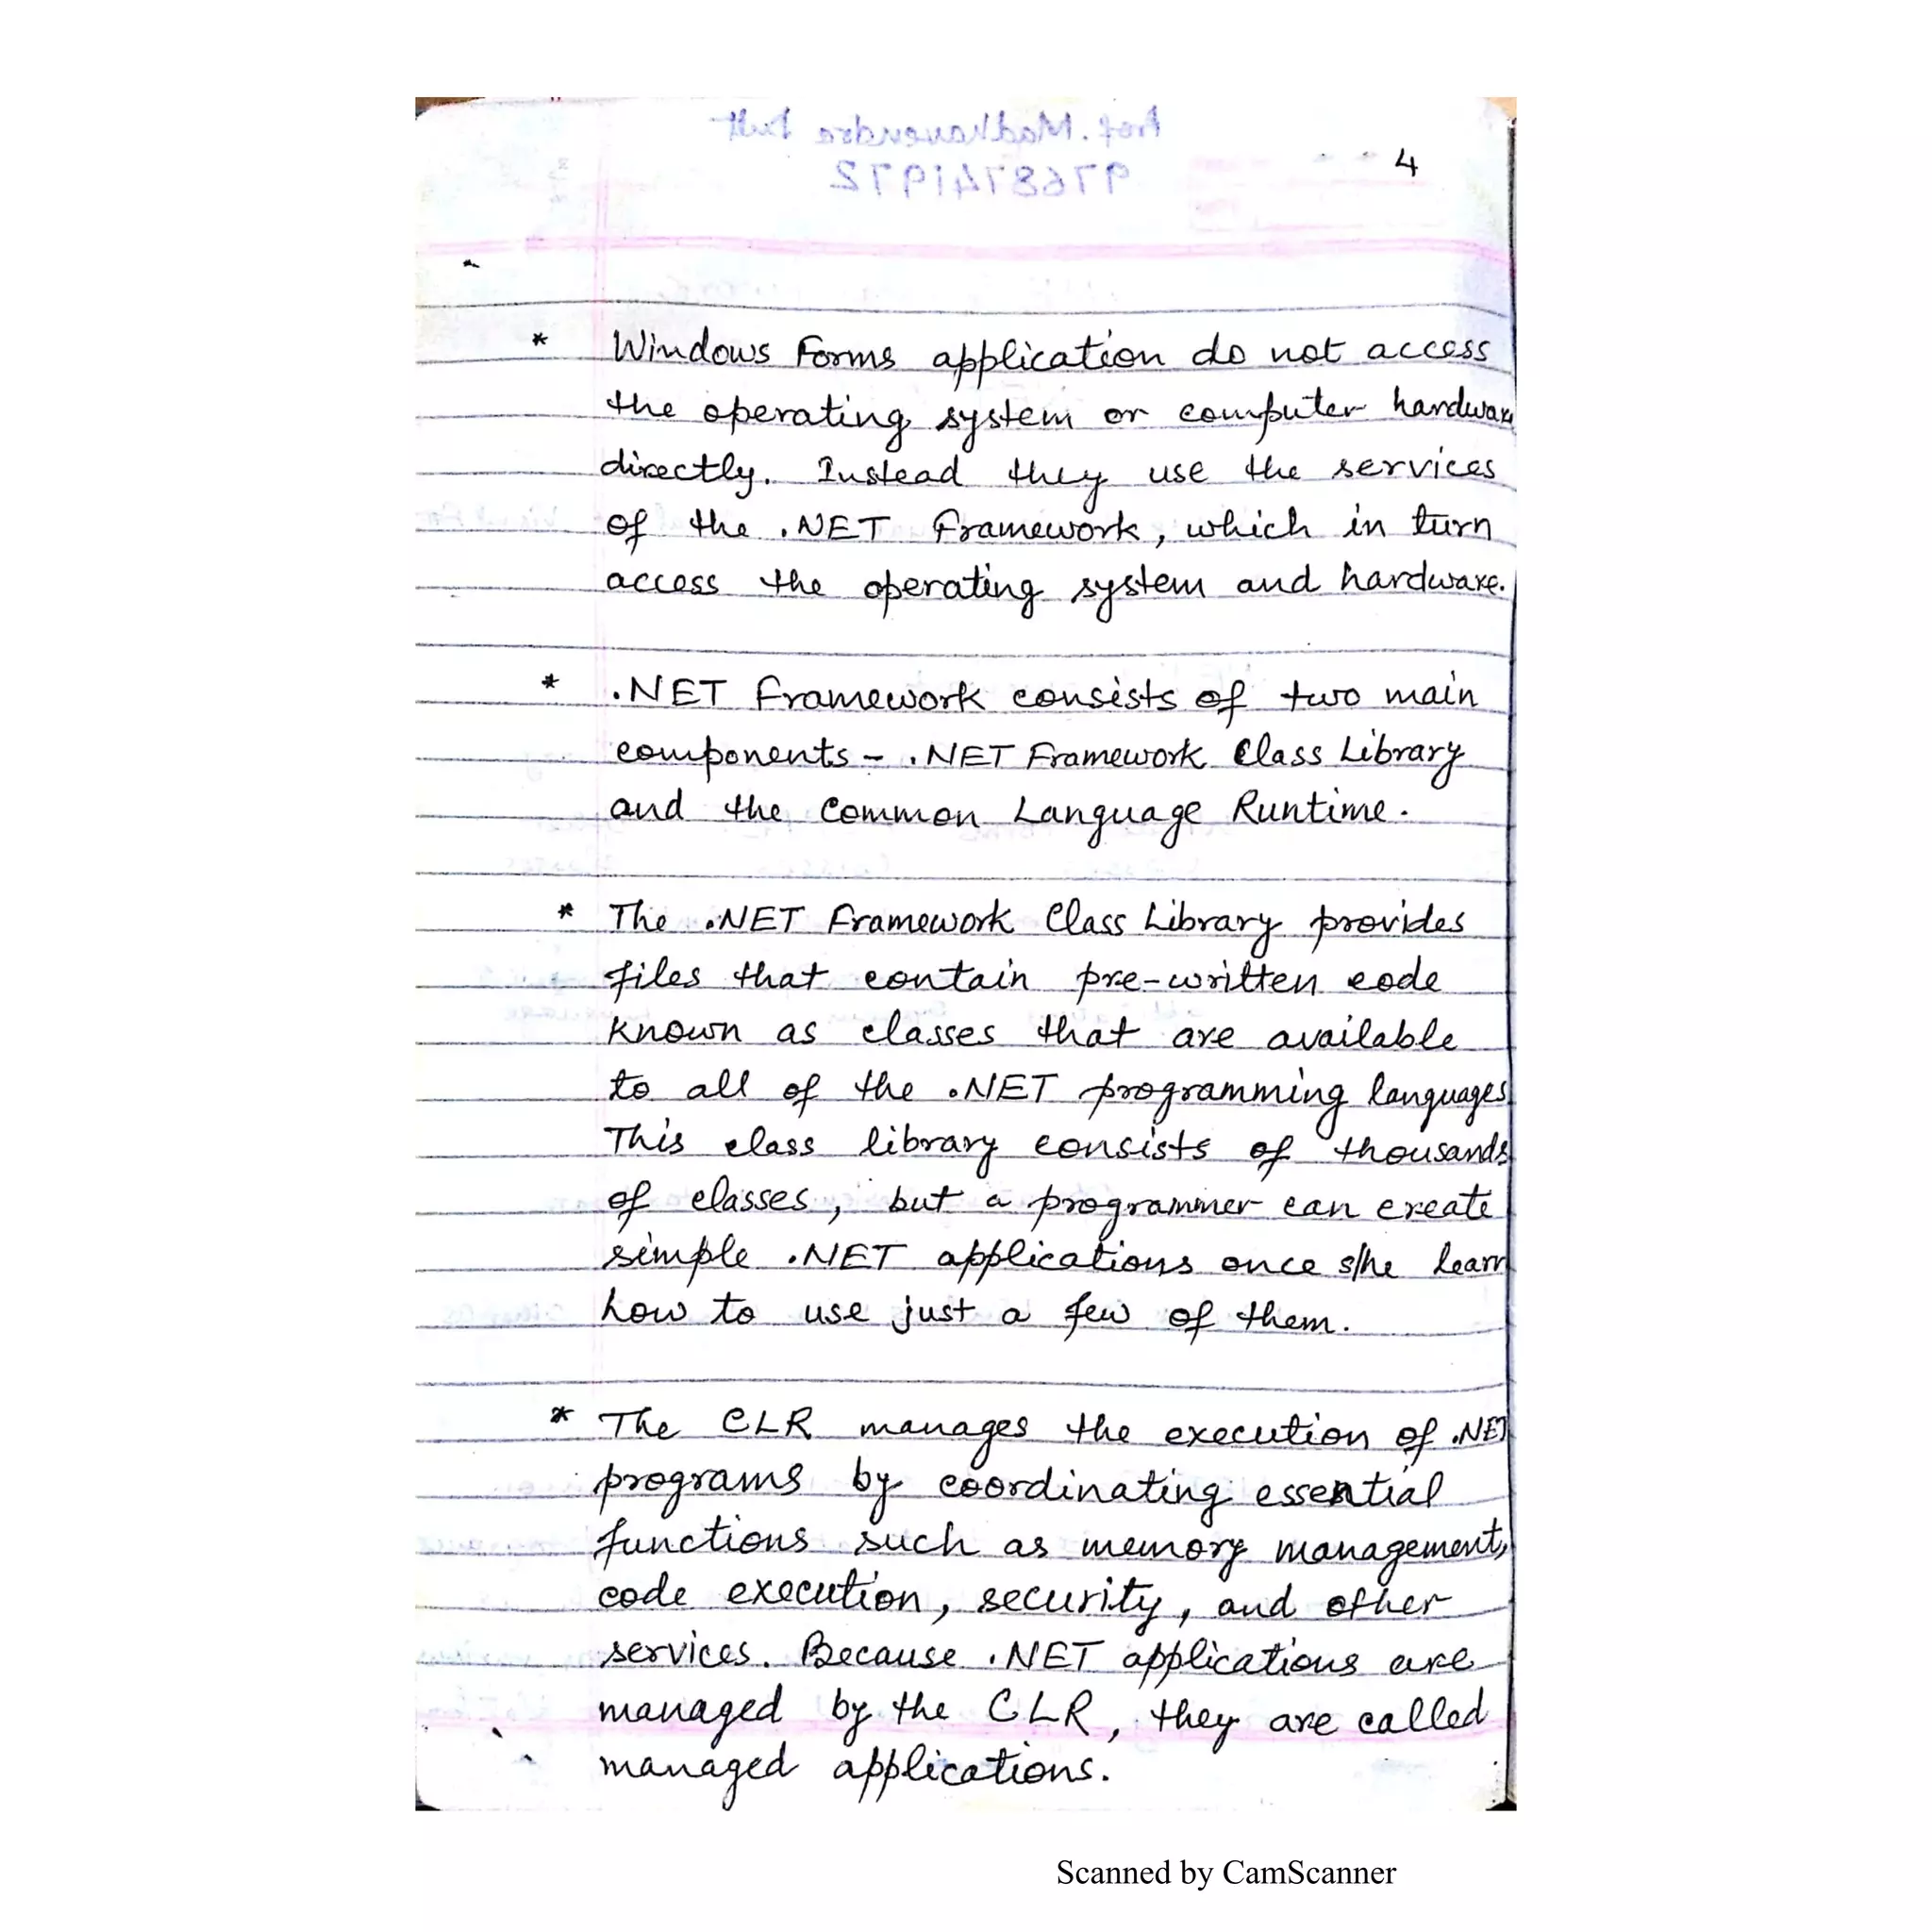 Prof. Madhavendra Dutt
9768741972
4
* Windows Forms application do not access
the operating system or computer hardware
directly. Instead they use the services
of the .NET Framework, which in turn
access the operating system and hardware.
* .NET Framework consists of two main
components - .NET Framework Class Library
and the Common Language Runtime.
* The .NET Framework Class Library provides
files that contain pre-written code
known as classes that are available
to all of the .NET programming languages
This class library consists of thousands
of classes, but a programmer can create
simple .NET applications once s/he learn
how to use just a few of them.
* The CLR manages the execution of .NET
programs by coordinating essential
functions such as memory management,
code execution, security, and other
services. Because .NET applications are
managed by the CLR, they are called
managed applications.
Scanned by CamScanner